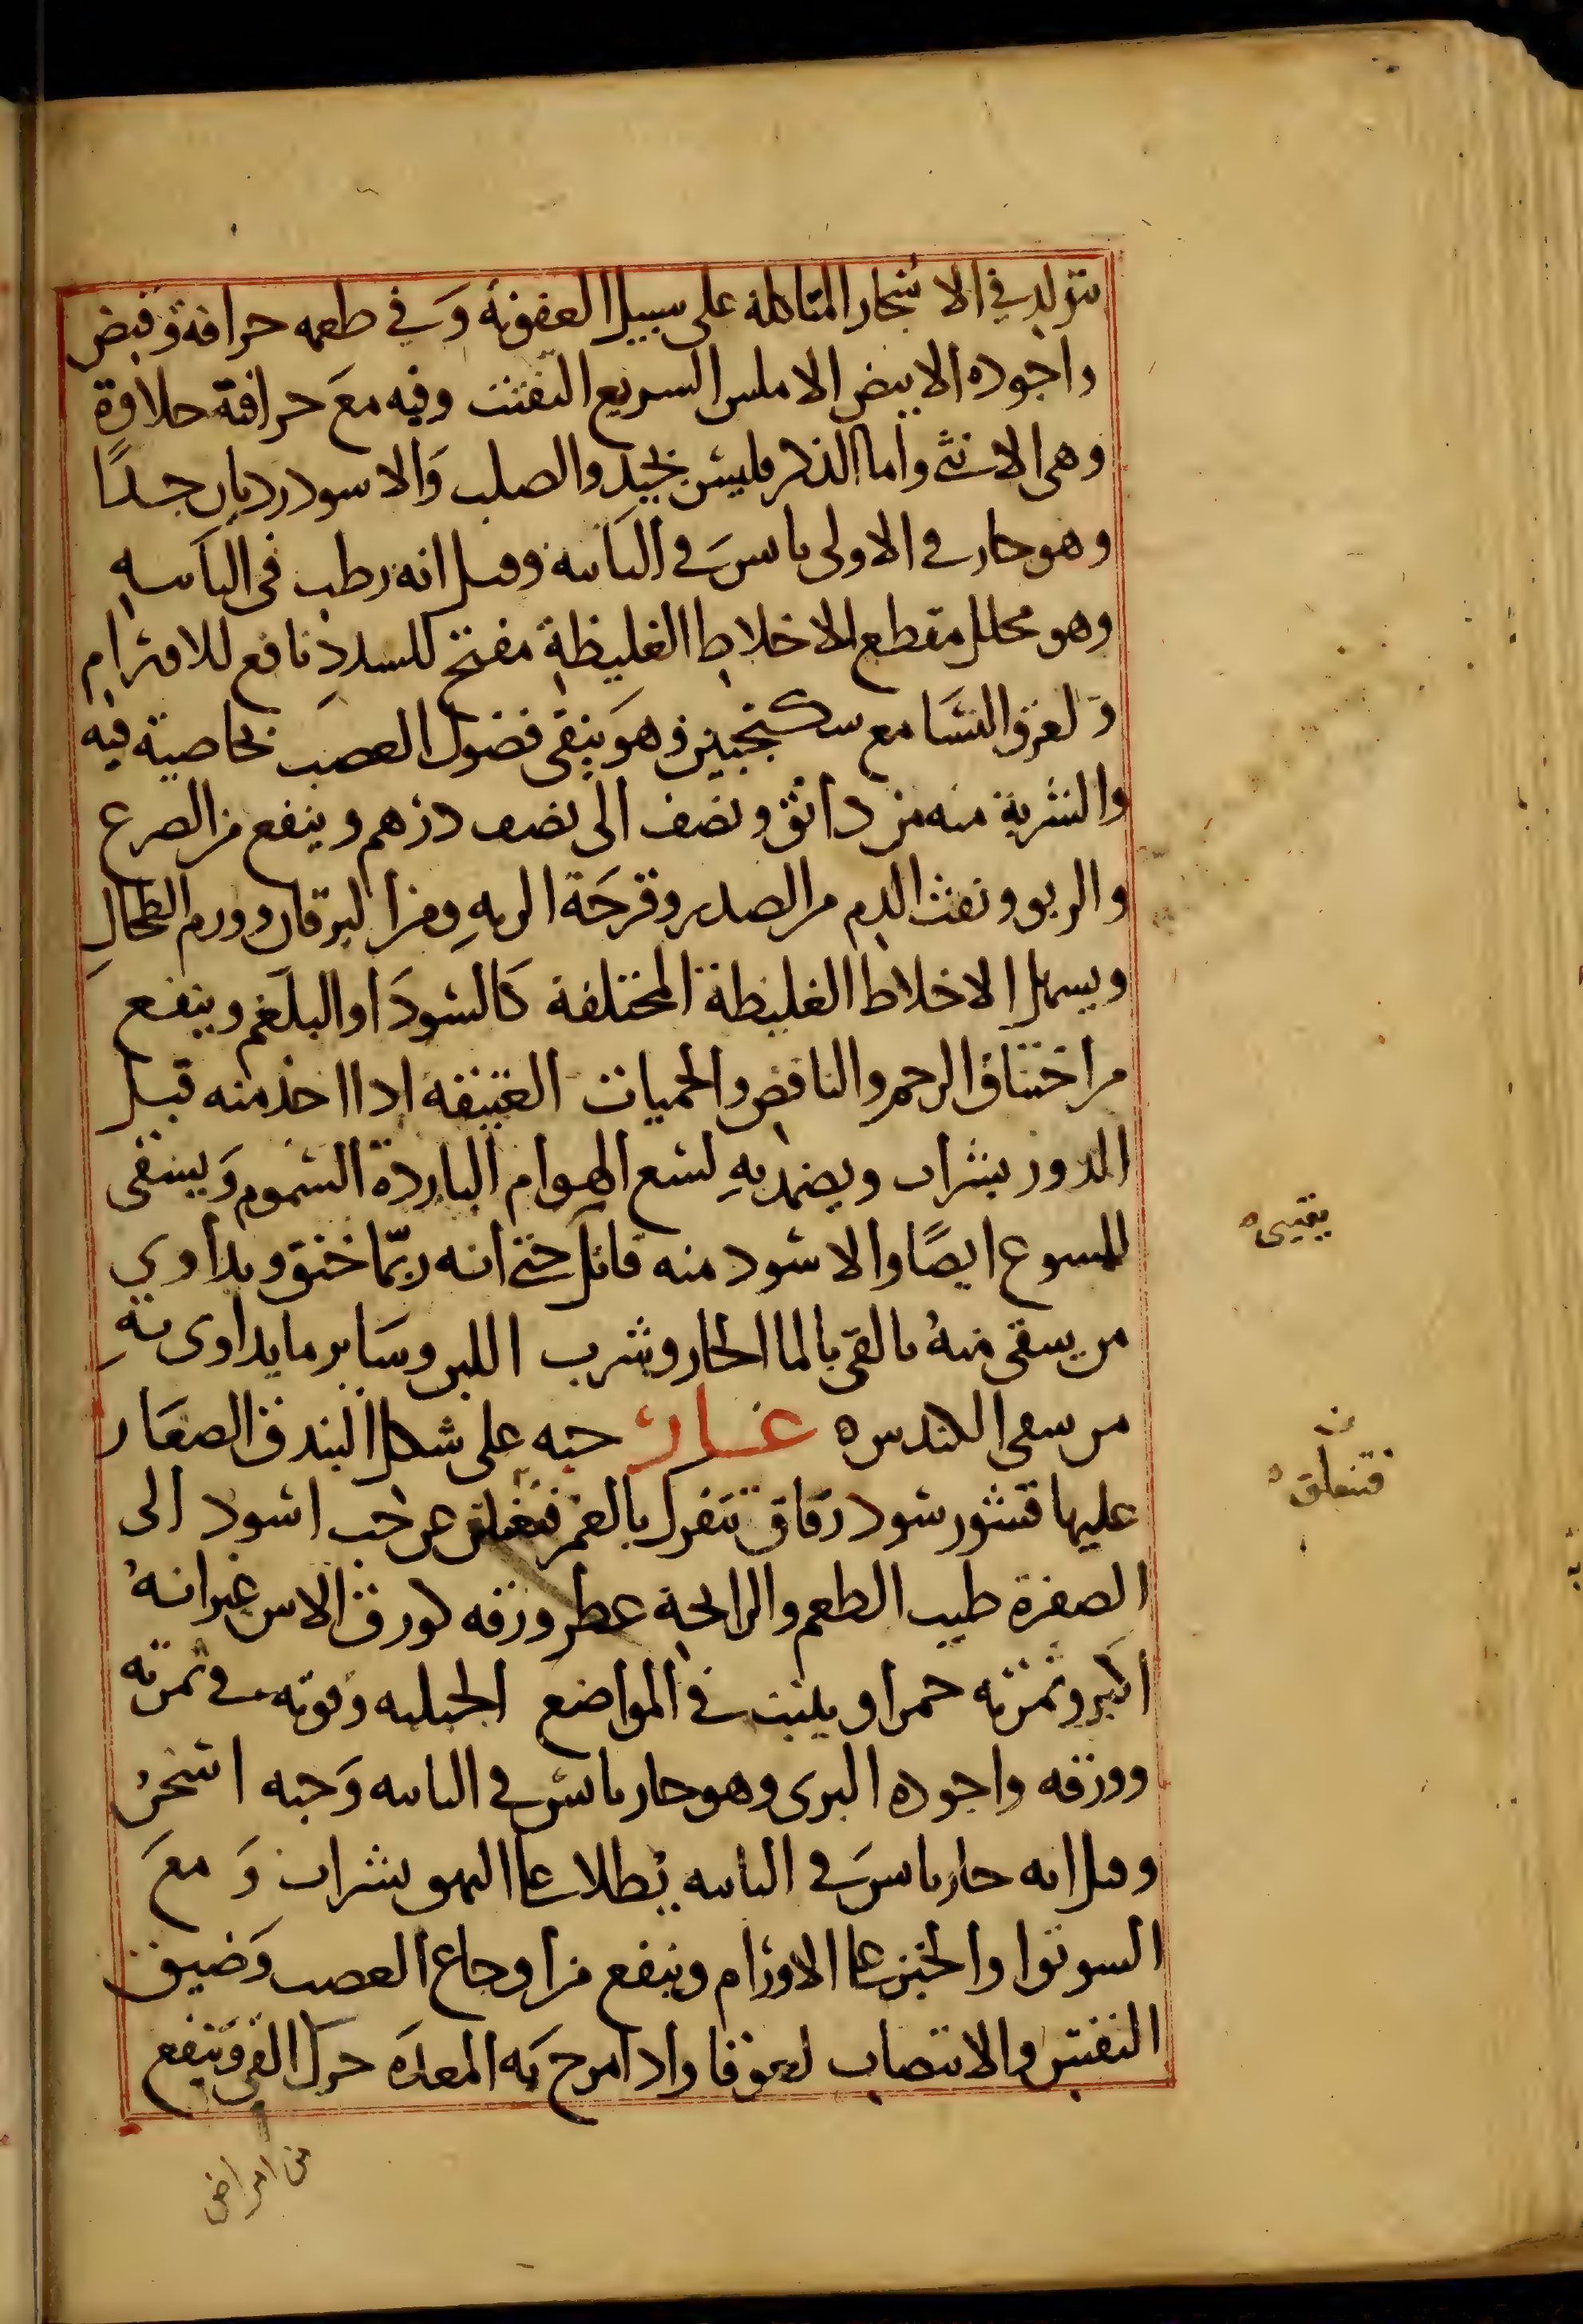 يتولد في الاشجار المتاكلة على سبيل العفونة وفي طعمه حرافة وقبض
واجوده الابيض الاملس السريع التفتت وفيه مع حرافة حلاوة
وهى الانثى واما الذكر فليس بجيد والصلب والاسود رديان جدًا
وهو حار في الاولى يابس في الثانية وقيل انه رطب في الثانية
وهو محلل مقطع الاخلاط الغليظة مفتح للسدد نافع للاورام
ولعرق النسا مع سكنجبين وهو ينقى فضول العصب بخاصية فيه
والشربة منه من دانق ونصف الى نصف درهم وينفع من الصرع
والربو ونفث الدم من الصدر وقرحة الريه ومن اليرقان وورم الطحال
ويسهل الاخلاط الغليظة المختلفة كالسودا والبلغم وينفع
من اختناق الرحم والنافض والحميات العتيقة اذا اخذ منه قبل
الدور بشراب ويضمد به لسع الهوام الباردة السموم ويسقى
للسوع ايضًا والاسود منه قاتل حتى انه ربّما خنق ويداوي
من يسقى منه بالقى بالما الحار وشرب اللبن وساير ما يداوى به
من سقى الكندس ه غار حبه على شكل البندق الصغار
عليها قشور سود رقاق تتفرك بالغمز فتغلق عن حب اسود الى
الصفرة طيب الطعم والرايحة عطر ورقه كورق الاس غير انه
اكبر وثمرته حمرا وينبت في المواضع الجبليه وقوته في ثمرته
وورقه واجوده البرى وهو حار يابس في الثانيه وحبه اسخن
وقيل انه حار يابس في الثانيه يطلا على البهق بشراب ومع
السونوا والخبز على الاورام وينفع من اوجاع العصب وضيق
النفس والانتصاب لعوقا واذا مرخ به المعدة حرك القى وينفع
من امراض
يقيى ه
ن
فتنفلق ه